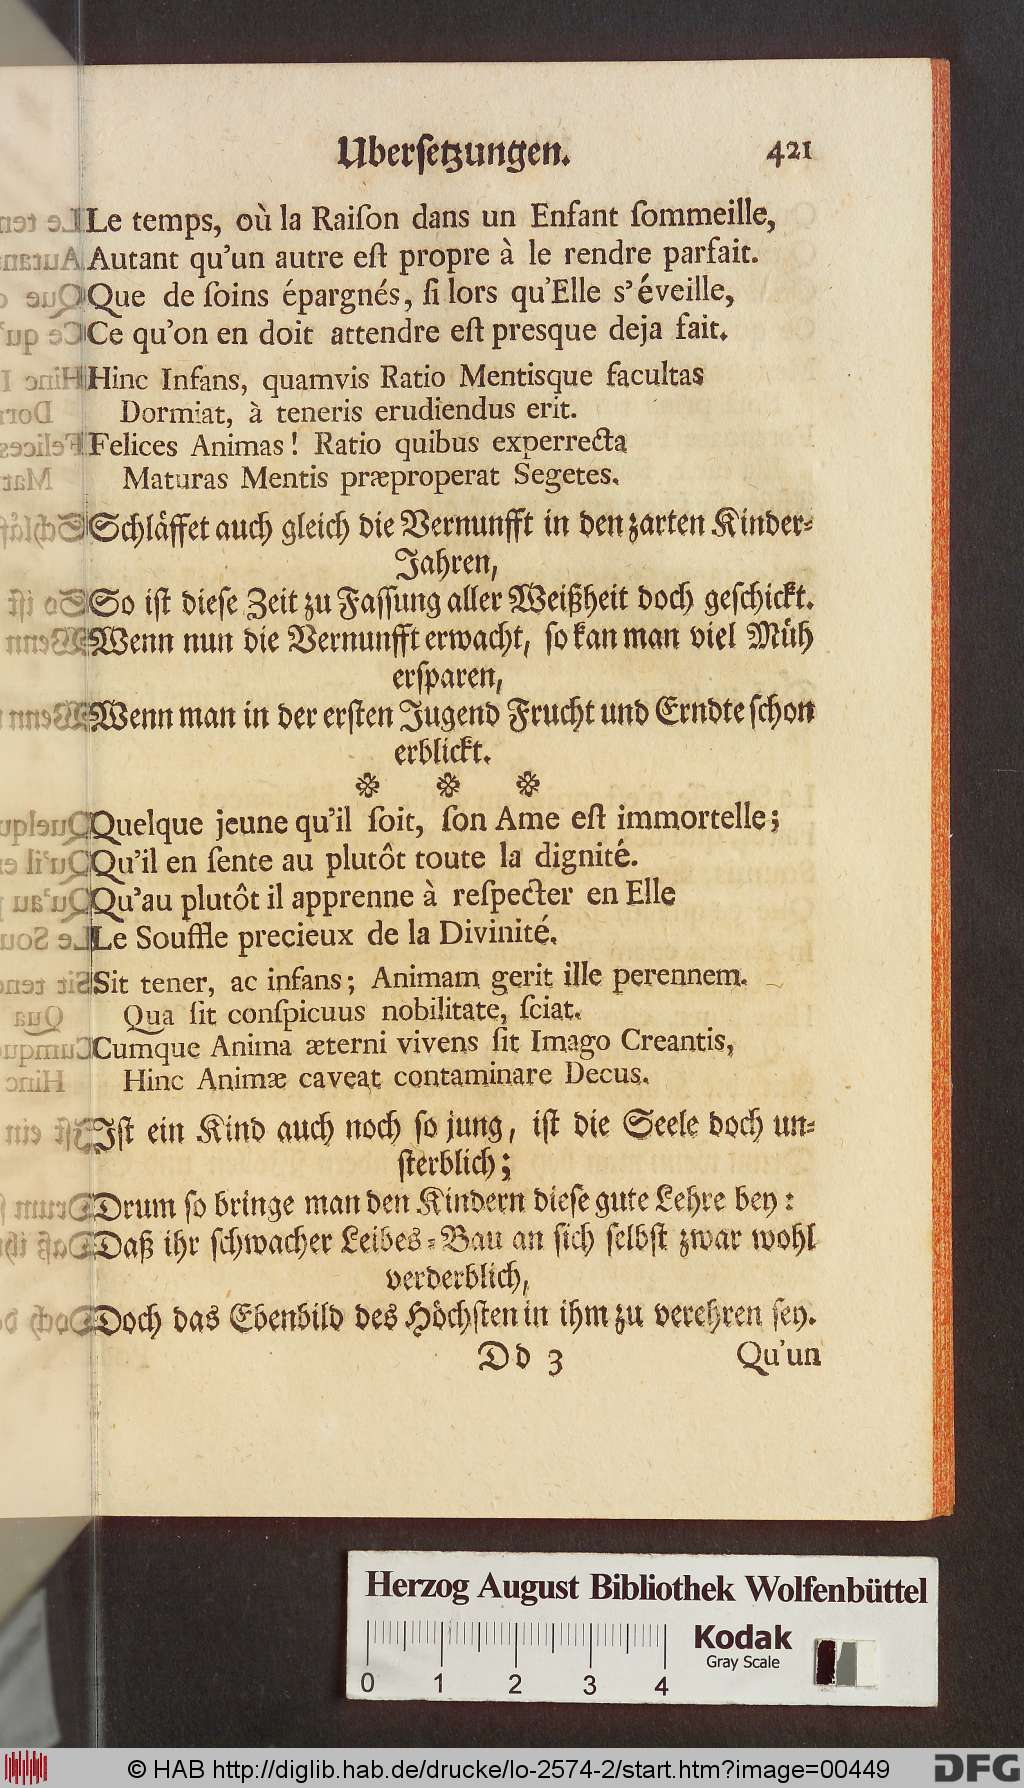 Ubersetzungen. 421
Le temps, où la Raiſon dans un Enfant ſommeille,
Autant qu'un autre eſt propre à le rendre parfait.
Que de ſoins épargnés, ſi lors qu'Elle s'éveille,
Ce qu'on en doit attendre eſt presque deja fait.
Hinc Infans, quamvis Ratio Mentisque facultas
Dormiat, à teneris erudiendus erit.
Felices Animas! Ratio quibus experrecta
Maturas Mentis præproperat Segetes.
Schläffet auch gleich die Vernunfft in den zarten Kinder-
Jahren,
So iſt dieſe Zeit zu Faſſung aller Weißheit doch geſchickt.
Wenn nun die Vernunfft erwacht, ſo kan man viel Müh
erſparen,
Wenn man in der erſten Jugend Frucht und Erndte ſchon
erblickt.
Quelque jeune qu'il ſoit, ſon Ame eſt immortelle;
Qu'il en ſente au plutôt toute la dignité.
Qu'au plutôt il apprenne à reſpecter en Elle
Le Souffle precieux de la Divinité.
Sit tener, ac infans; Animam gerit ille perennem.
Qua ſit conſpicuus nobilitate, ſciat.
Cumque Anima æterni vivens ſit Imago Creantis,
Hinc Animæ caveat contaminare Decus.
Iſt ein Kind auch noch ſo jung, iſt die Seele doch un-
ſterblich;
Drum ſo bringe man den Kindern dieſe gute Lehre bey:
Daß ihr ſchwacher Leibes-Bau an ſich ſelbſt zwar wohl
verderblich,
Doch das Ebenbild des Höchſten in ihm zu verehren ſey.
Dd 3 Qu'un
Herzog August Bibliothek Wolfenbüttel
Kodak
Gray Scale
0 1 2 3 4
© HAB http://diglib.hab.de/drucke/lo-2574-2/start.htm?image=00449
DFG